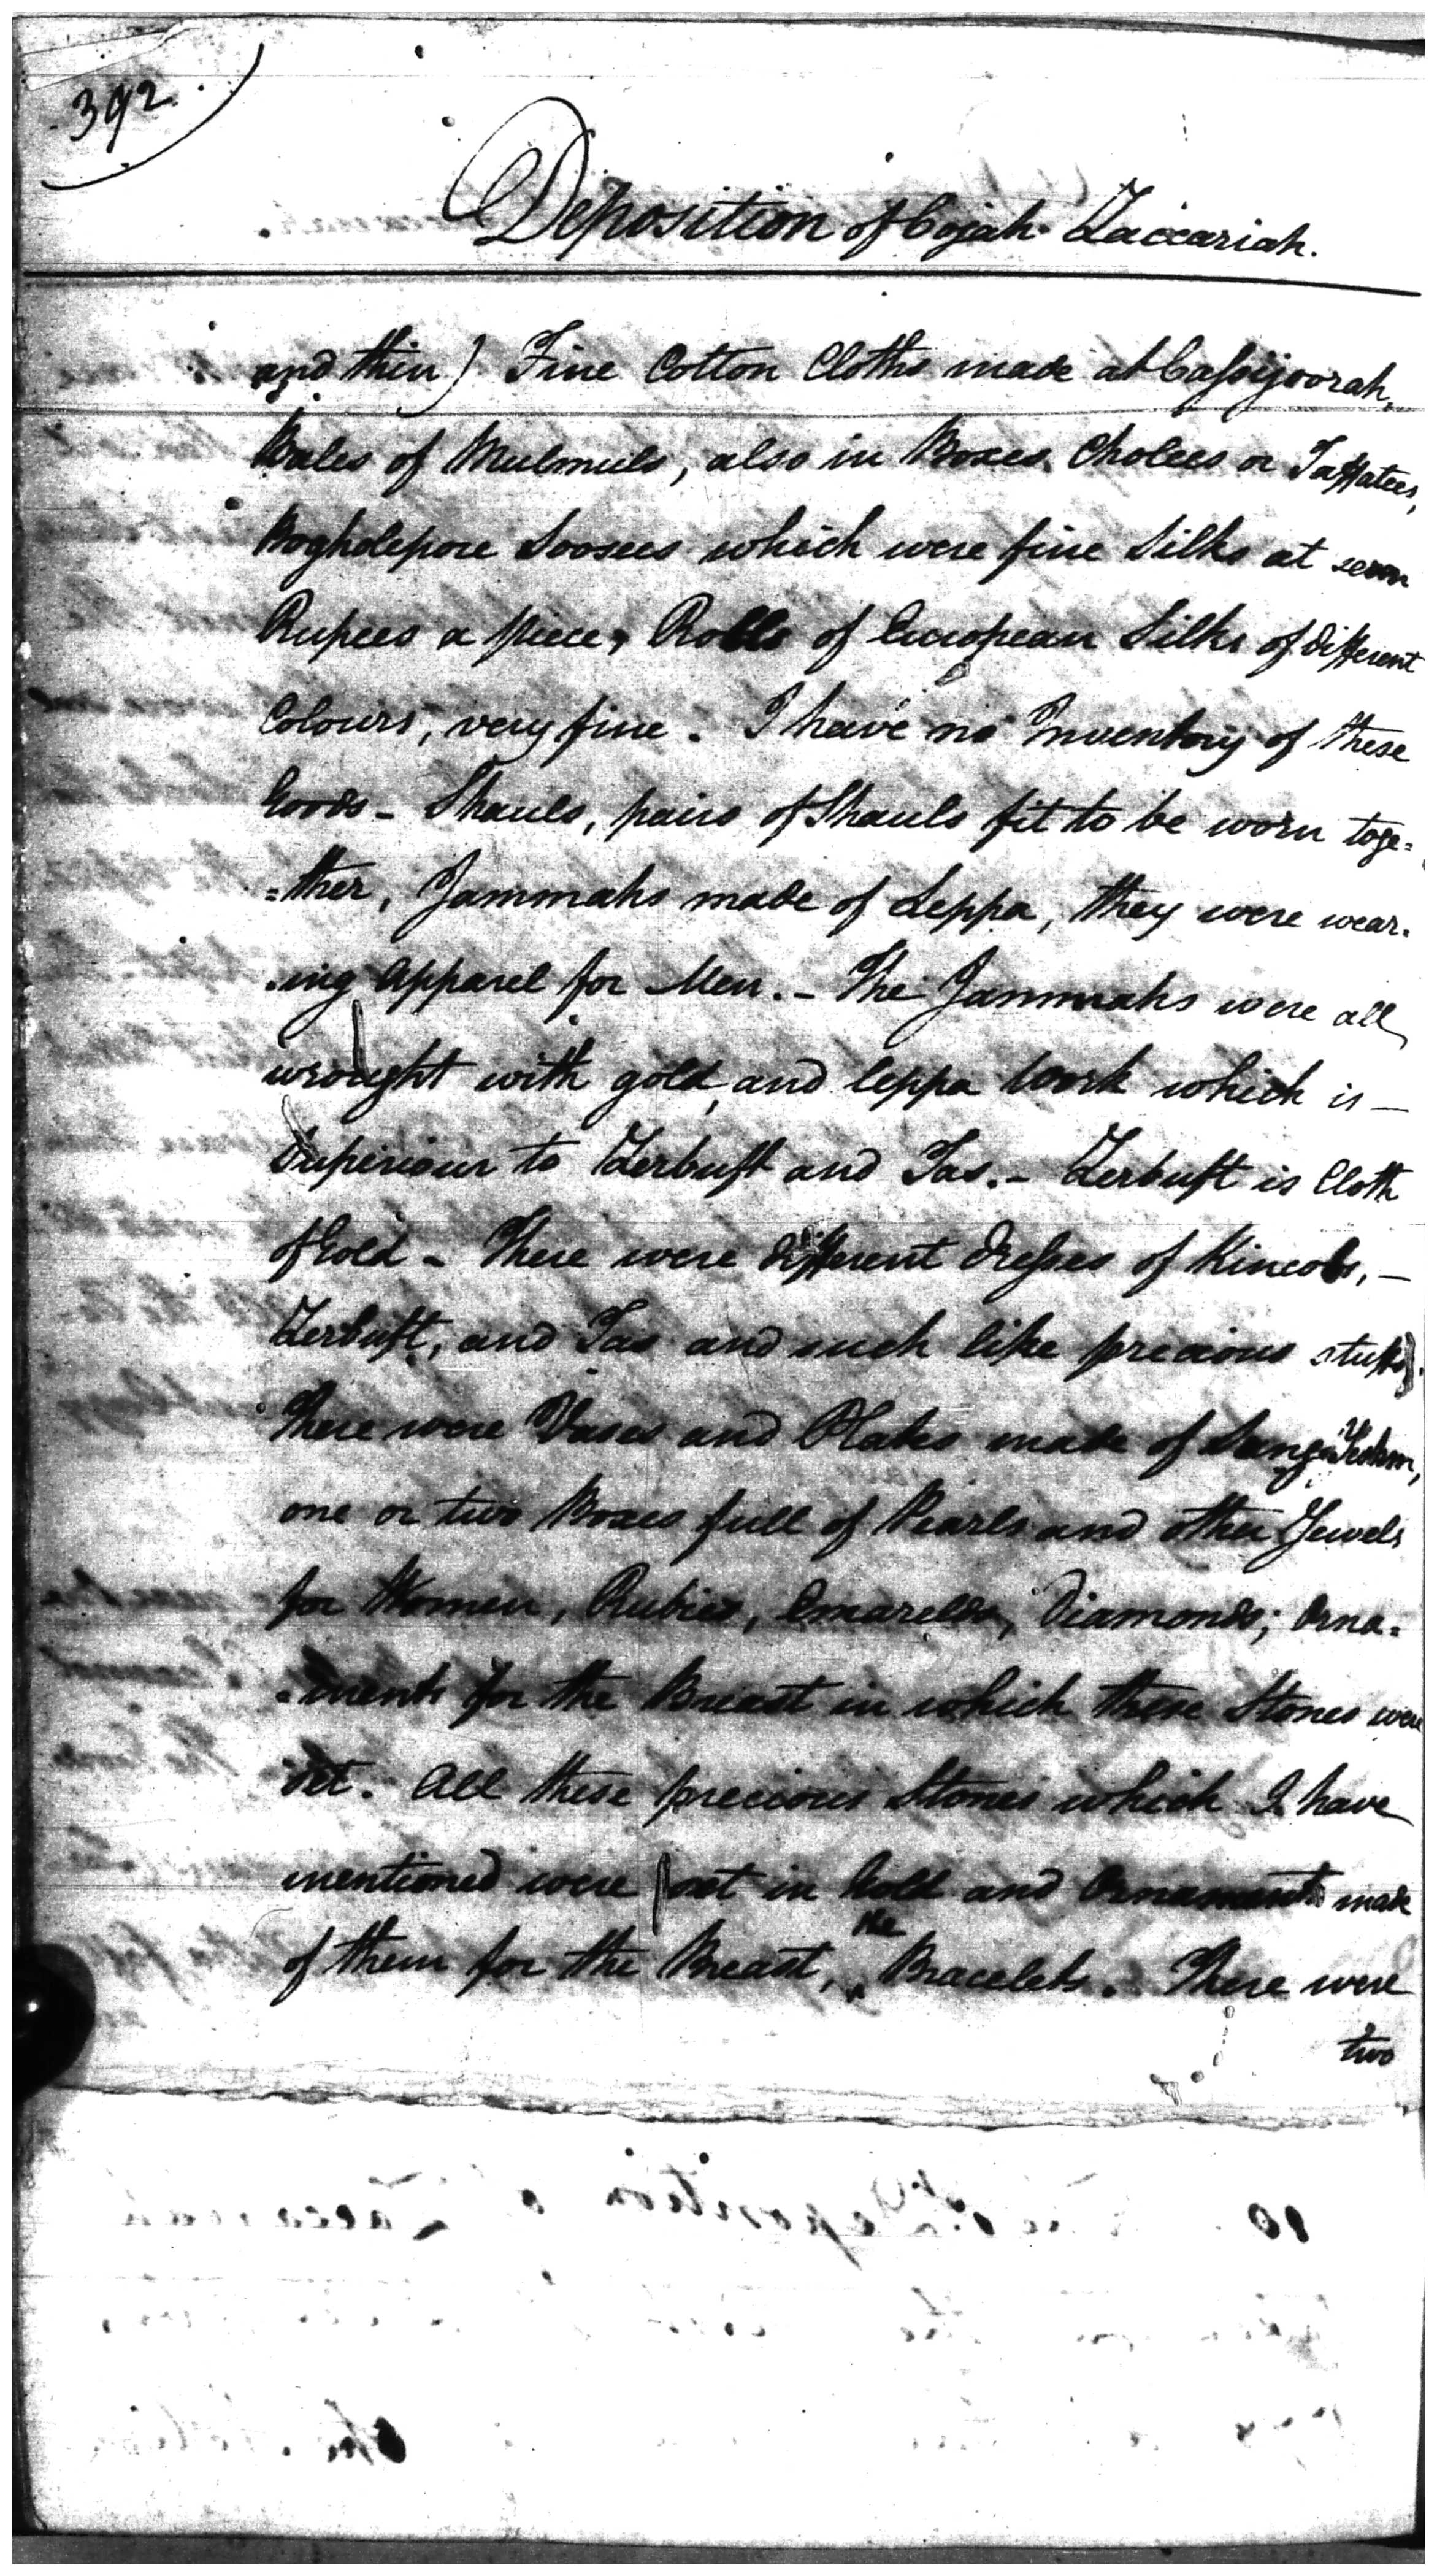 392
Deposition of Cojah Zaccariah.
and thin) Fine Cotton Cloths made at Cassijoorah,
Bales of Mulmuls, also in Boxes Cholees or Taffatees,
Bogholepore Soosees which were fine Silks at seven
Rupees a piece, Rolls of European Silks of different
Colours, very fine. I have no Inventory of these
Goods - Shauls, pairs of Shauls fit to be worn toge=
=ther, Jammahs made of Leppa, they were wear-
-ing Apparel for Men. - The Jammahs were all
wrought with gold, and leppa Work which is -
Superiour to Zerbuft and Tas. - Zerbuft is Cloth
of Gold - There were different dresses of Kincobs, -
Zerbuft, and Tas and such like precious stuffs).
There were Vases and Plates made of Sanga Yeshm,
one or two Boxes full of Pearls and other Jewels
for Women, Rubies, Emarelds, Diamonds; Orna=
=ments for the Breast in which these Stones were
set. All these precious Stones which I have
mentioned were set in Gold and Ornaments made
of them for the Breast, the Bracelets. There were
two